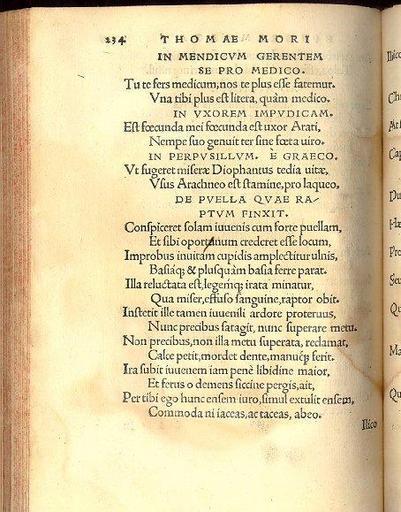 234 THOMAE MORI
IN MENDICVM GERENTEM
SE PRO MEDICO.
Tu te fers medicum, nos te plus esse fatemur.
Vna tibi plus est litera, quàm medico.
IN VXOREM IMPVDICAM.
Est fœcunda mei fœcunda est uxor Arati,
Nempe suo genuit ter sine fœta uiro.
IN PERPVSILLVM. È GRAECO.
Vt fugeret miseræ Diophantus tedia uitæ,
Vsus Arachneo est stamine, pro laqueo.
DE PVELLA QVAE RA/
PTVM FINXIT.
Conspiceret solam iuuenis cum forte puellam,
Et sibi oportunum crederet esse locum,
Improbus inuitam cupidis amplectitur ulnis,
Basiaq; & plusquàm basia ferre parat.
Illa reluctata est, legemq; irata minatur,
Qua miser, effuso sanguine, raptor obit.
Instetit ille tamen iuuenili ardore proteruus,
Nunc precibus satagit, nunc superare metu.
Non precibus, non illa metu superata, reclamat,
Calce petit, mordet dente, manuq; ferit.
Ira subit iuuenem iam penè libidine maior,
Et ferus o demens siccine pergis, ait,
Per tibi ego hunc ensem iuro, simul extulit ensem,
Commoda ni iaceas, ac taceas, abeo.
Ilico